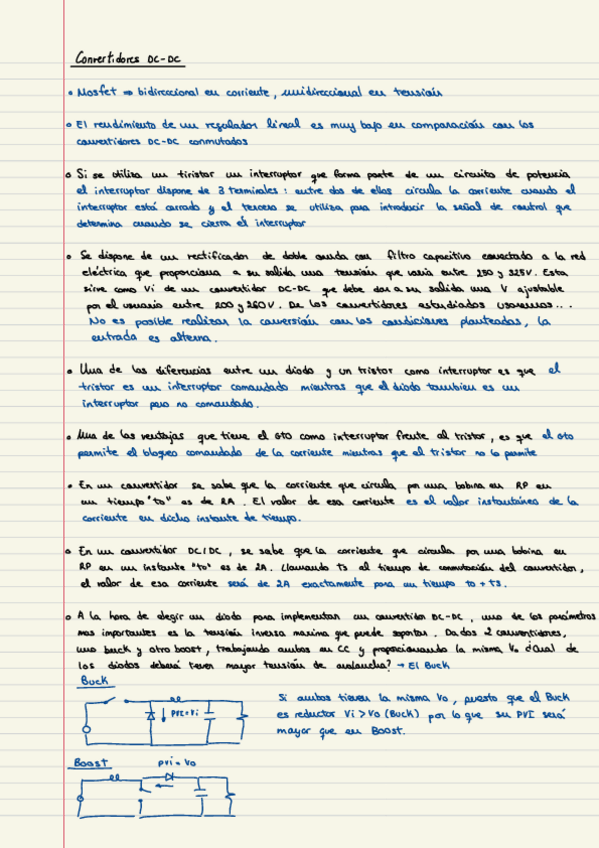 Convertidores DC-DC
• Mosfet ⇒ bidireccional en corriente, unidireccional en tensión
• El rendimiento de un regulador lineal es muy bajo en comparación con los
convertidores DC-DC conmutados
• Si se utiliza un tiristor un interruptor que forma parte de un circuito de potencia
el interruptor dispone de 3 terminales: entre dos de ellos circula la corriente cuando el
interruptor está cerrado y el tercero se utiliza para introducir la señal de control que
determina cuando se cierra el interruptor
• Se dispone de un rectificador de doble onda con filtro capacitivo conectado a la red
eléctrica que proporciona a su salida una tensión que varía entre 250 y 325V. Esta
sirve como Vi de un convertidor DC-DC que debe dar a su salida una V ajustable
por el usuario entre 200 y 260V. De los convertidores estudiados usaremos...
No es posible realizar la conversión con las condiciones planteadas, la
entrada es alterna.
• Una de las diferencias entre un diodo y un tristor como interruptor es que el
tristor es un interruptor comandado mientras que el diodo tambien es un
interruptor pero no comandado.
• Una de las ventajas que tiene el GTO como interruptor frente al tristor, es que el Gto
permite el bloqueo comandado de la corriente mientras que el tristor no lo permite
• En un convertidor se sabe que la corriente que circula por una bobina en RP en
un tiempo "to" es de 2A. El valor de esa corriente es el valor instantáneo de la
corriente en dicho instante de tiempo.
• En un convertidor DC/DC, se sabe que la corriente que circula por una bobina en
RP en un instante "to" es de 2A. Llamando Ts al tiempo de conmutación del convertidor,
el valor de esa corriente será de 2A exactamente para un tiempo to + Ts.
• A la hora de elegir un diodo para implementar un convertidor DC-DC, uno de los parámetros
mas importantes es la tensión inversa maxima que puede soportar. Dados 2 convertidores,
uno buck y otro boost, trabajando ambos en CC y proporcionando la misma Vo ¿Cual de
los diodos deberá tener mayor tensión de avalancha? → El Buck
Buck
PVI=Vi
Si ambos tienen la misma Vo, puesto que el Buck
es reductor Vi > Vo (Buck) por lo que su PVI será
mayor que en Boost.
Boost
PVI=Vo